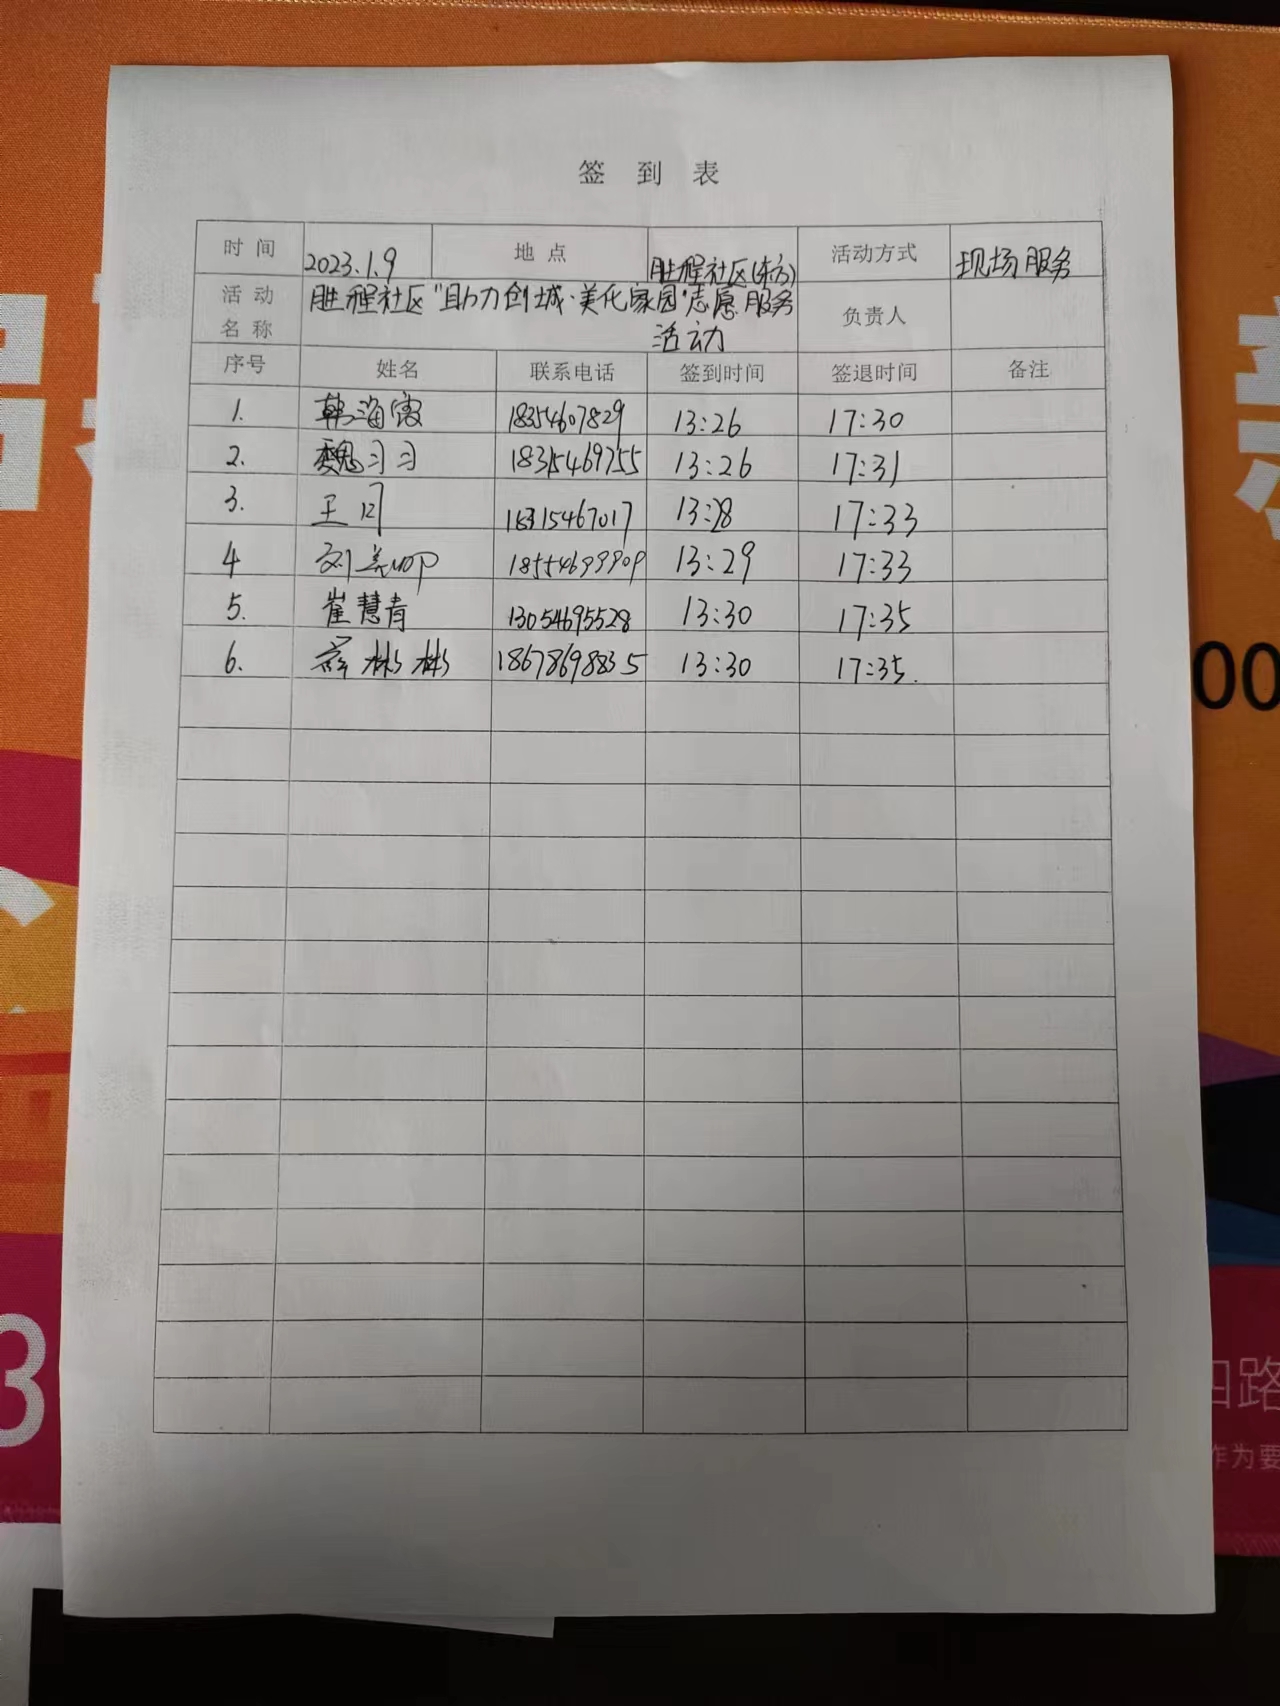 签 到 表
时 间 2023.1.9 地 点 胜程社区(东方) 活动方式 现场服务
活 动 名 称 胜程社区"助力创城·美化家园"志愿服务 负责人
活动
序号 姓名 联系电话 签到时间 签退时间 备注
1. 韩海霞 18354607829 13:26 17:30
2. 魏习习 18315469755 13:26 17:31
3. 王 16315467017 13:28 17:33
4 刘美 18554699909 13:29 17:33
5. 崔慧青 13054695528 13:30 17:35
6. 薛彬彬 18678698835 13:30 17:35.
00
3
四路
作为要